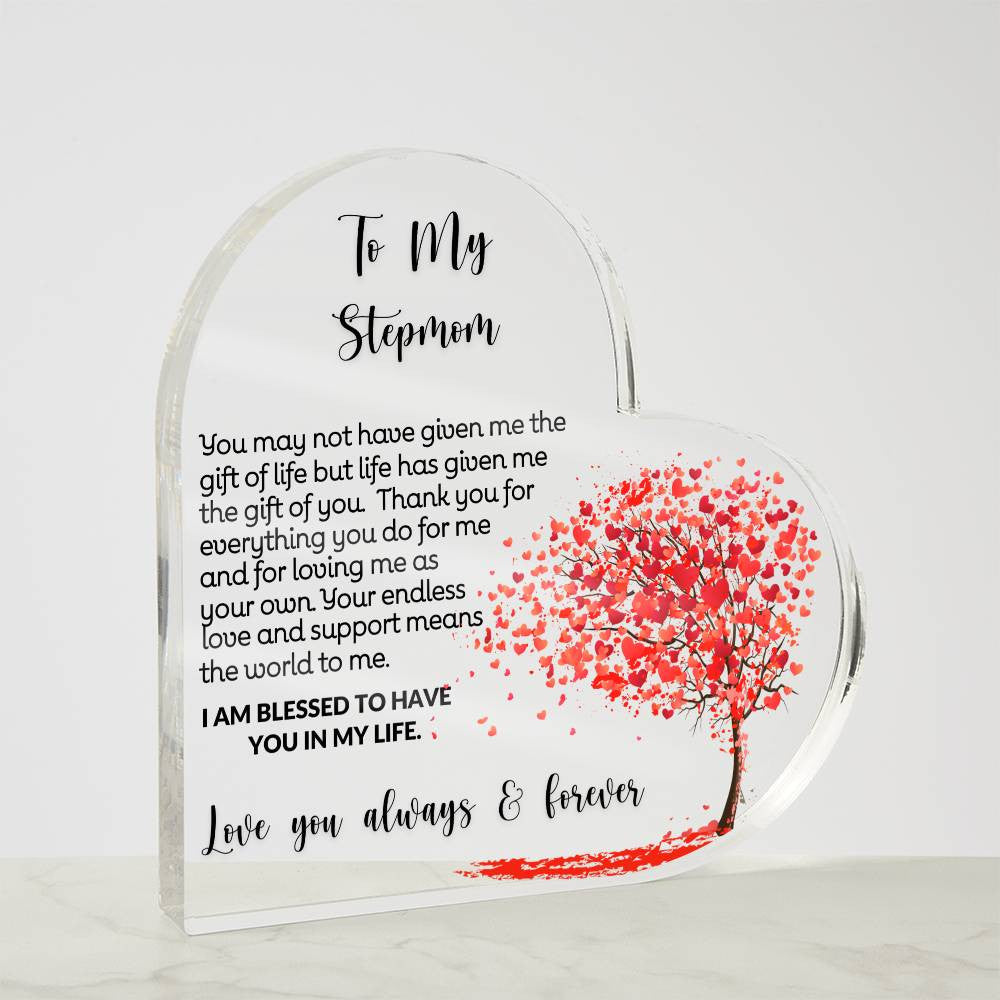 To My
Stepmom
You may not have given me the
gift of life but life has given me
the gift of you. Thank you for
everything you do for me
and for loving me as
your own. Your endless
love and support means
the world to me.
I AM BLESSED TO HAVE
YOU IN MY LIFE.
Love you always & forever